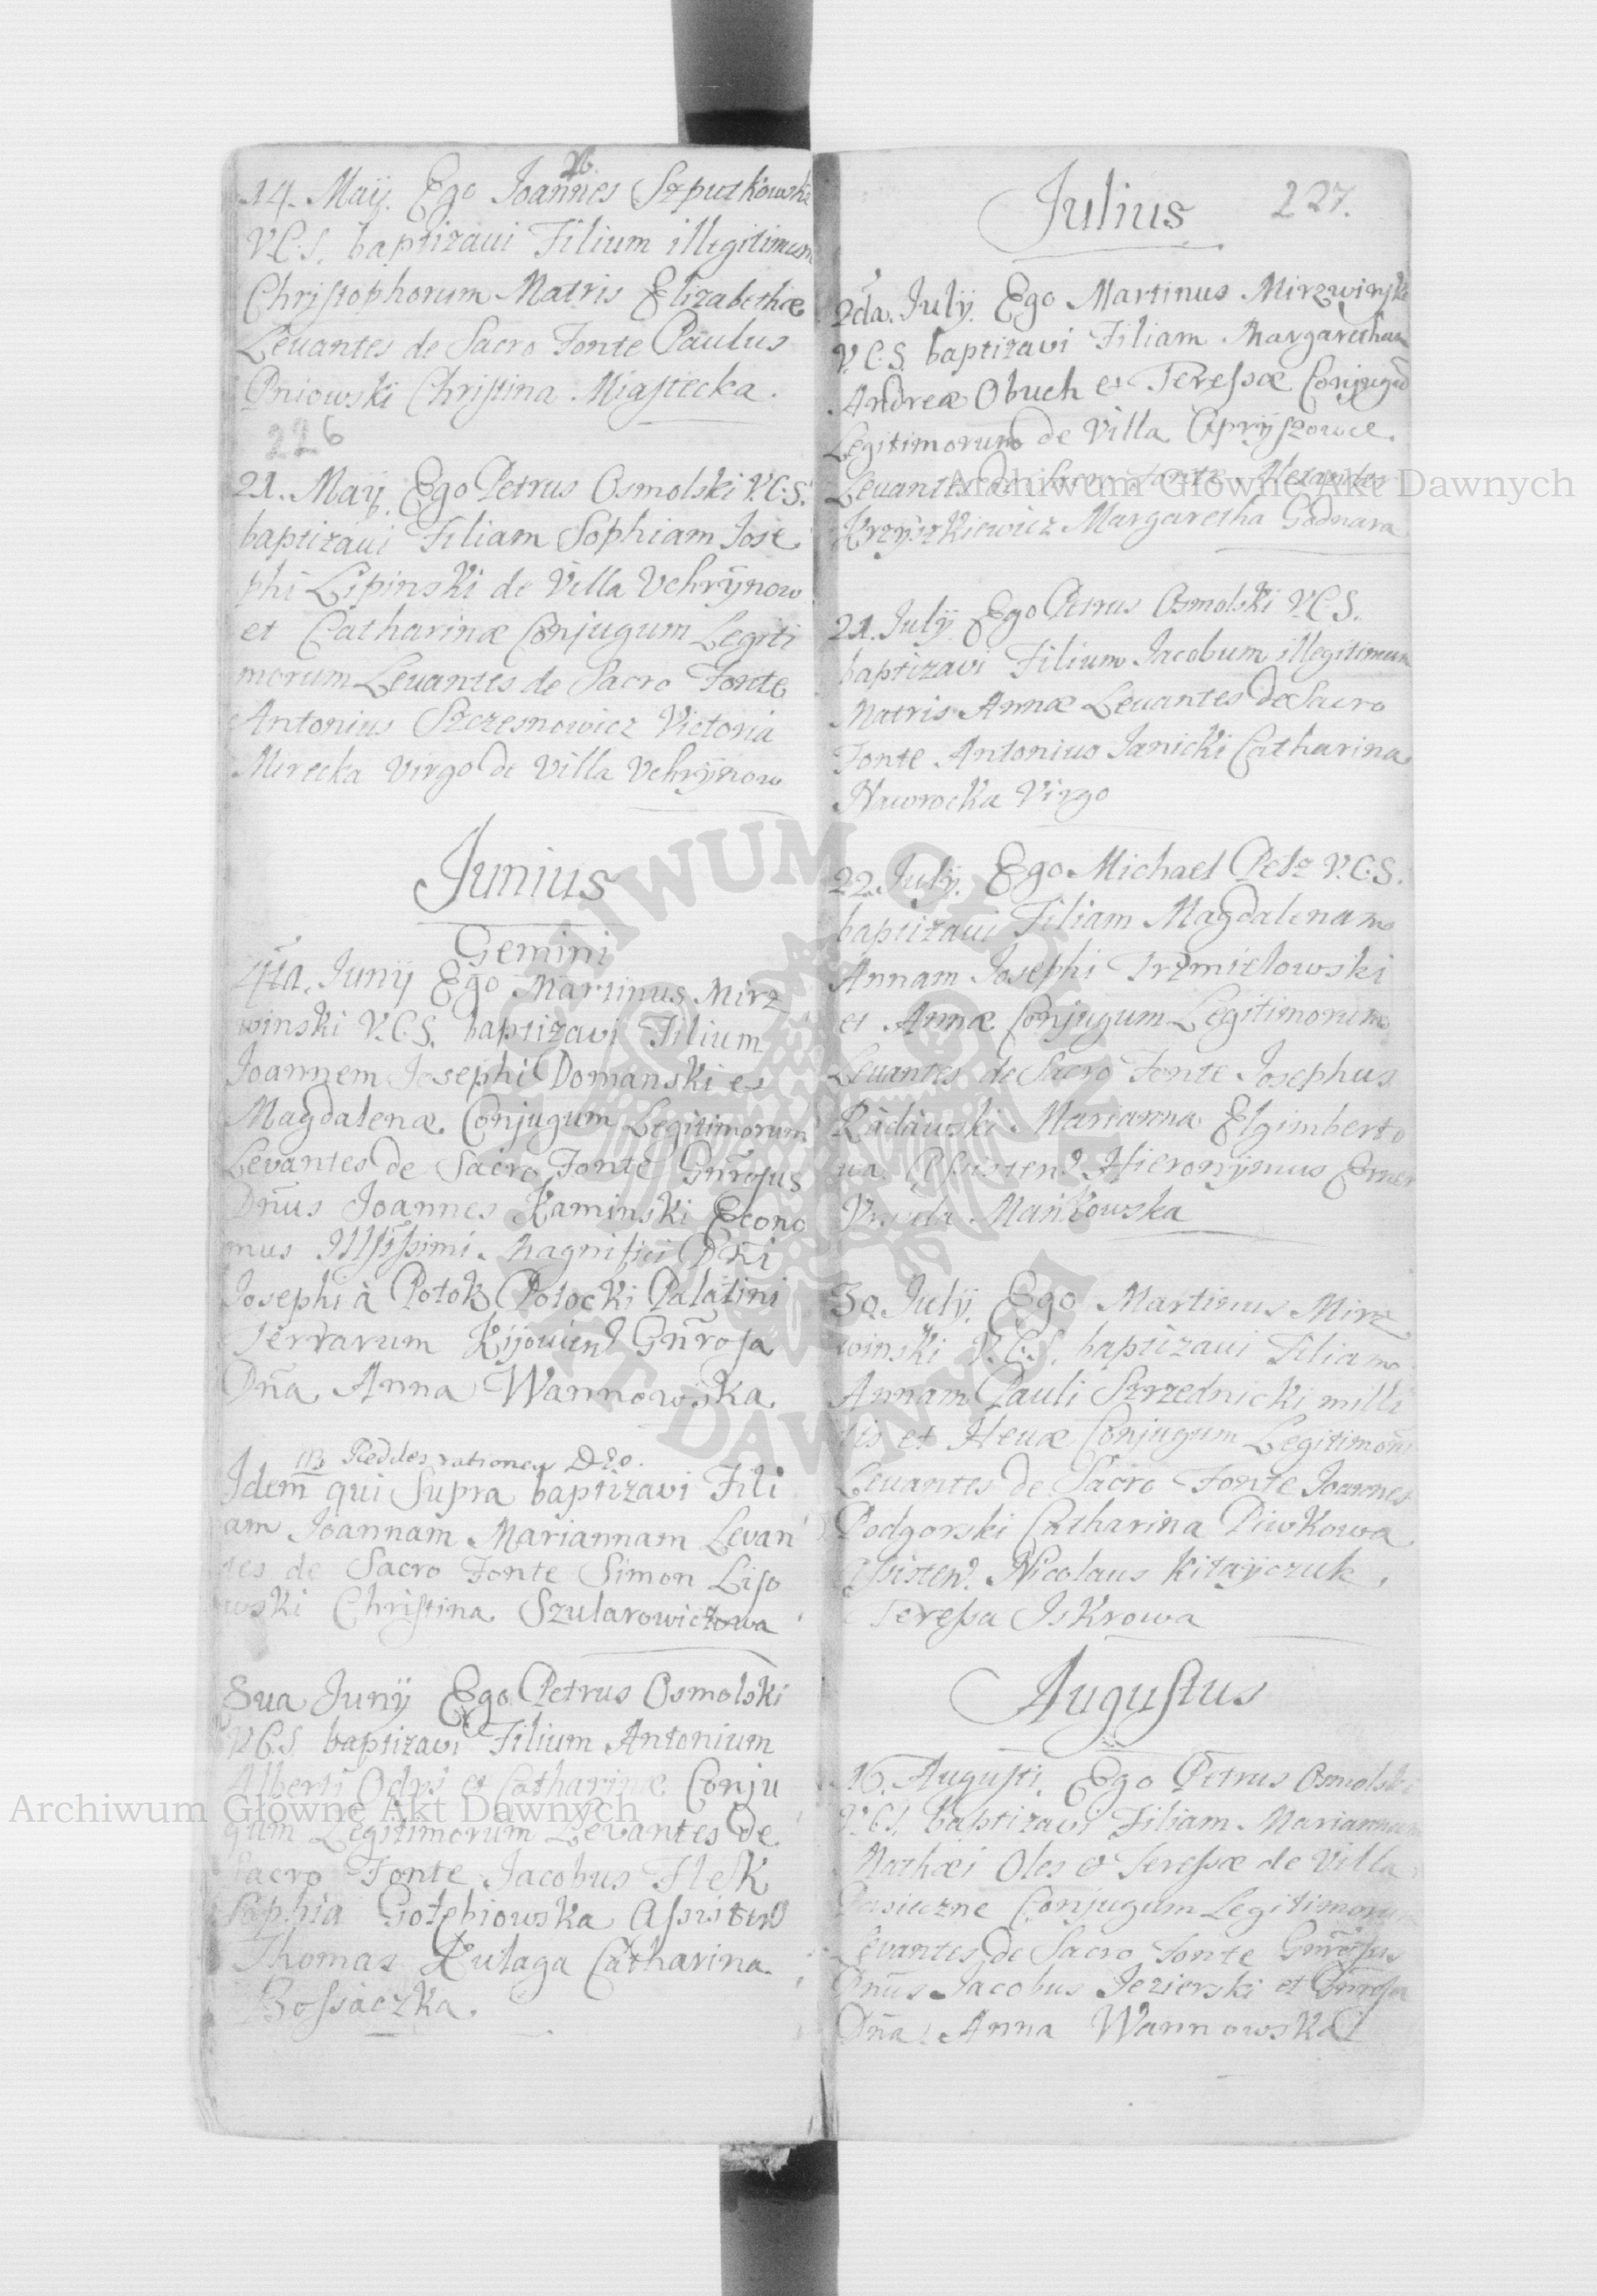 14. Maij. Ego Joannes Szputkowski
V.C.S. baptizaui Filium illegitimum
Christophorum Matris Elizabethæ
Leuantes de Sacro Fonte Paulus
Pniowski Christina Miastecka.
226
21. Maij. Ego Petrus Osmolski V.C.S.
baptizaui Filiam Sophiam Jose
phi Lipinski de Villa Vchrÿnow
et Catharinæ Conjugum Legiti
morum Leuantes de Sacro Fonte
Antonius Szczesnowicz Victoria
Mirecka Virgo de Villa Vchrÿnow
Junius
Gemini
4ta. Junij Ego Martinus Mirz
winski V.C.S. baptizavi Filium
Joannem Josephi Domanski et
Magdalenæ Conjugum Legitimorum
Levantes de Sacro Fonte Gnrosus
Dnus Joannes Kaminski Econo
mus Illssimi Magnifici Dni
Josephi à Potok Potocki Palatini
Terrarum Kijowien Gnrosa
Dna Anna Wannowska.
NB Reddes rationem Deo.
Idem qui Supra baptizavi Fili
am Joannam Mariannam Levan
tes de Sacro Fonte Simon Liso
wski Christina Szularowiczowa
8va Junij Ego Petrus Osmolski
V.C.S. baptizavi Filium Antonium
Alberti Odys et Catharinæ Conju
gum Legitimorum Levantes de
Sacro Fonte Jacobus Flesk
Sophia Gołębiowska Assisten
Thomas Kulaga Catharina
Bossaczka.
227.
Julius
2da. July. Ego Martinus Mirzwinski
V.C.S. baptizavi Filiam Margaretham
Andreæ Obuch et Teressæ Conjugu
Legitimorum de Villa Opryszowce.
Leuantes de Sacro Fonte Alexander
Krzyszkiewicz Margaretha Godnara
21. July Ego Petrus Osmolski V.C.S.
baptizavi Filium Jacobum illegitimum
Matris Annæ Leuantes de Sacro
Fonte Antonius Janicki Catharina
Nawrocka Virgo
22. July. Ego Michael Pelz V.C.S.
baptizaui Filiam Magdalenam
Annam Josephi Trzmielowski
et Annæ Conjugum Legitimorum
Leuantes de Sacro Fonte Josephus
Radawski Marianna Elgimberto
wa Assisten Hieronymus Erner
Vrsula Mańkowska
30. July. Ego Martinus Mirz
winski V.C.S. baptizavi Filiam
Annam Pauli Szrzednicki milli
tis et Hevæ Conjugum Legitimoru
Leuantes de Sacro Fonte Joannes
Podgorski Catharina Piwkowa
Assisten. Nicolaus Kitayczuk
Teressa Iskrowa
Augustus
16. Augusti. Ego Petrus Osmolski
V.C.S. baptizavi Filiam Mariannam
Mathæi Oles et Teressæ de Villa
Pasieczne Conjugum Legitimorum
Levantes de Sacro Fonte Gnrosus
Dnus Jacobus Jezierski et Gnrosa
Dna Anna Wannowska
Archiwum Główne Akt Dawnych
Archiwum Główne Akt Dawnych
ARCHIWUM GŁÓWNE AKT DAWNYCH